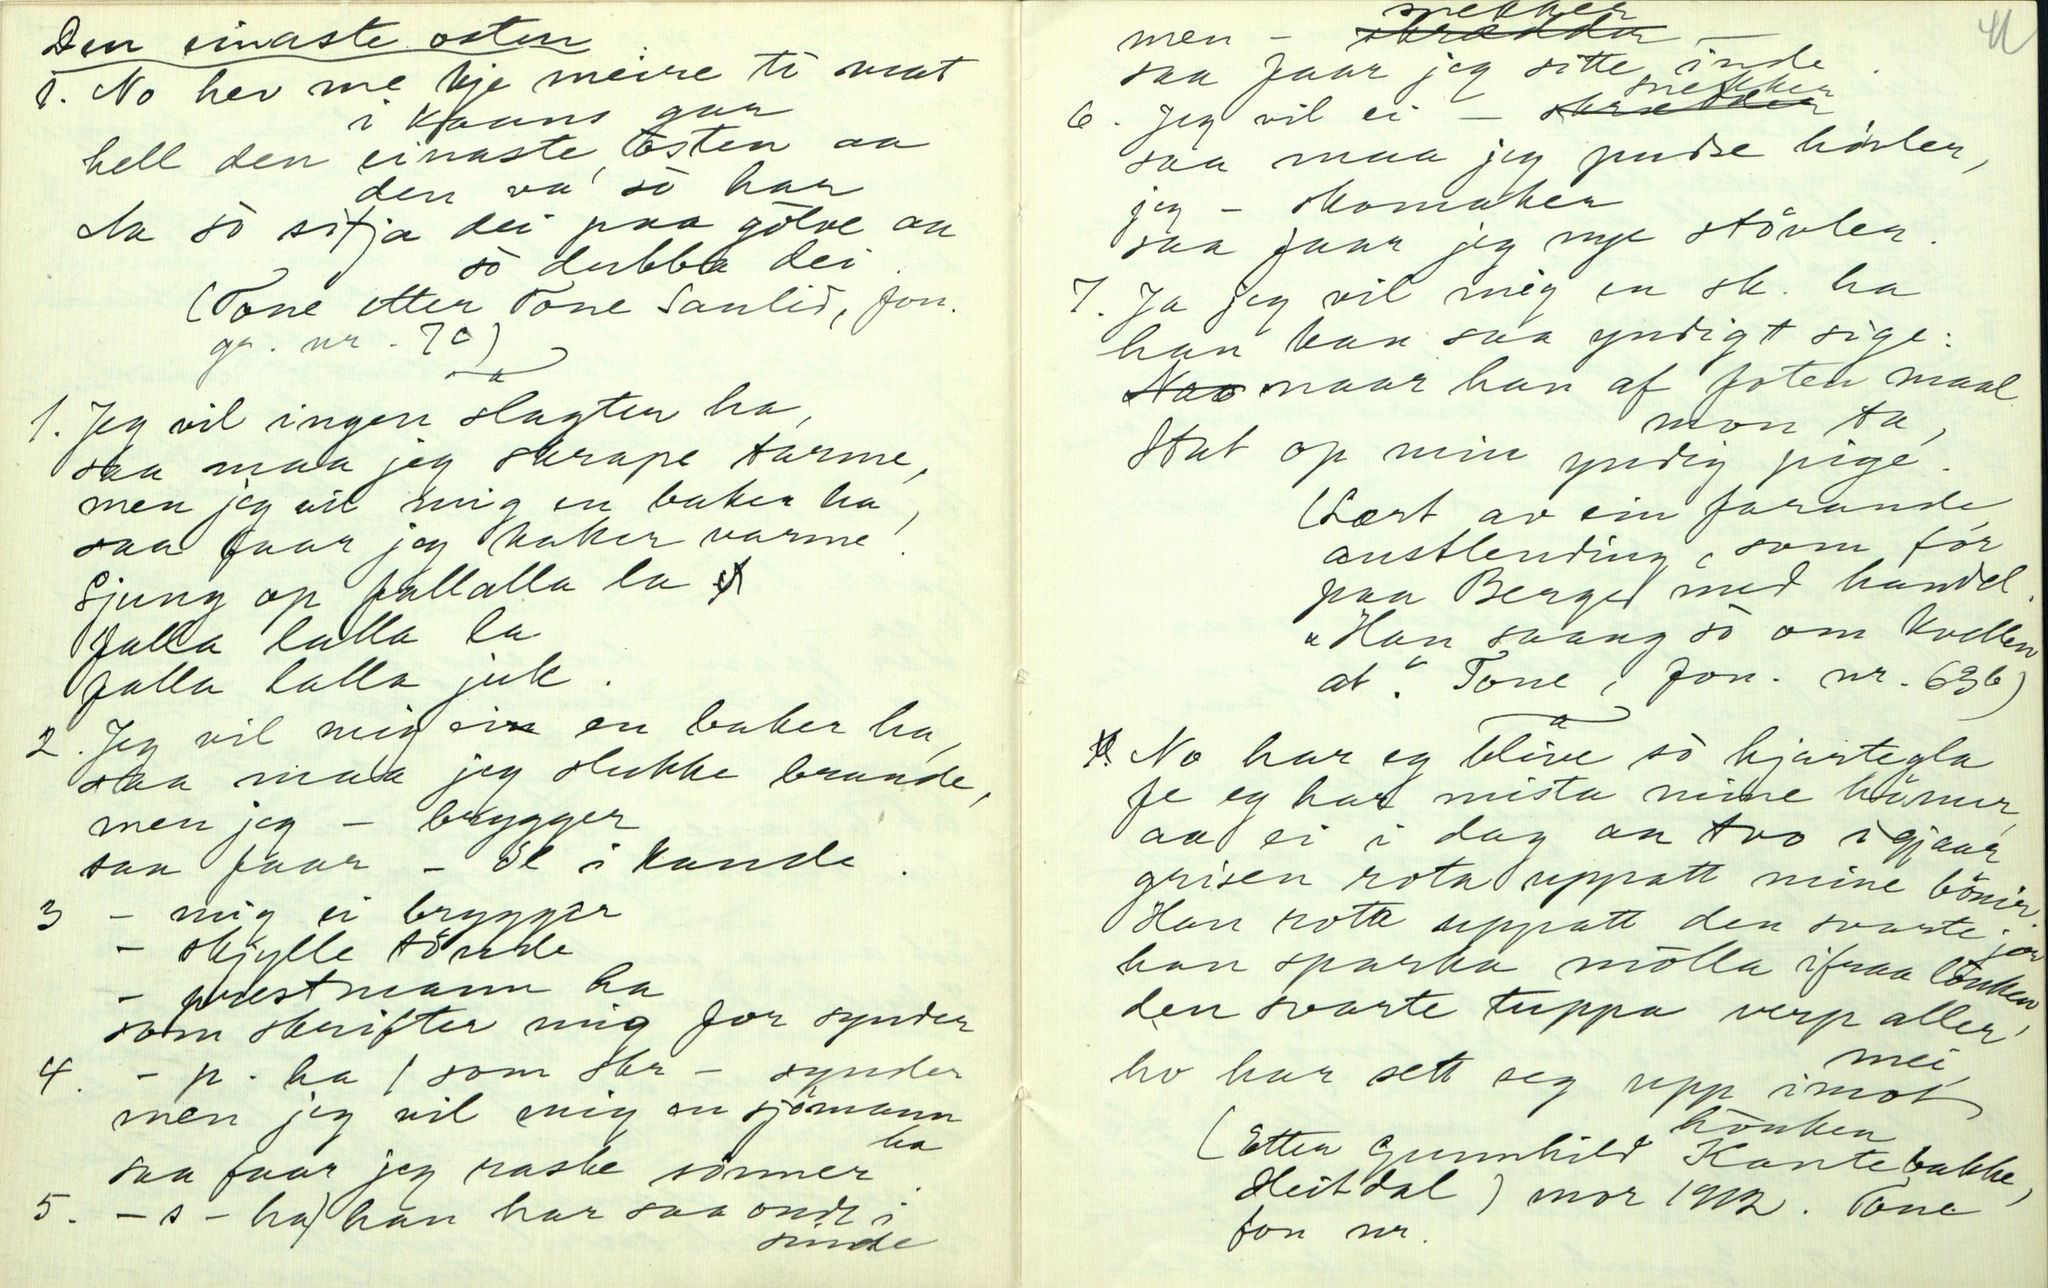 Den einaste osten
1. No hev me kje meire ti mat
i Kaans gar
hell den einaste osten aa
den va' sò har
Aa sò sitja dei paa gòlve aa
sò dubba dei.
(Tone etter Tone Sanlid, fon.
gr. nr. 7c)
1. Jeg vil ingen slagter ha,
saa maa jeg skrape tarme,
men jeg vil mig en baker ha,
saa faar jeg kaker varme.
Sjung op fallalla la
falla lalla la
falla lalla juk.
2. Jeg vil mig ein en baker ha,
saa maa jeg slukke brande,
men jeg – brygger
saa faar – öl i kande.
3 – mig ei brygger
– skylle tönde
– prestmann ha
som skrifter mig for synder
4. – p. ha / som skr – synder
men jeg vil mig en sjömann
ha
saa faar jeg raske sönner.
5. – s – ha) han har saa ondt i
sinde
men – skrædder snekker –
saa faar jeg sitte inde.
6. Jeg vil ei – skrædder snekker
saa maa jeg pudse hövler,
jeg – skomaker
saa faar jeg nye stövler.
7. Ja jeg vil mig en sk. ha
han kan saa yndigt sige:
Naa naar han af foten maal
mon ta,
Stat op min yndig pige.
(Lært av ein farande
austlending, som fór
paa Berge med handel.
"Han saang sò om kvellen
at." Tone, fon. nr. 63b)
No har eg blive sò hjartegla
fe eg har mista mine hönur,
aa ei i dag aa tvo i gjaar
grisen rota uppatt mine bönir.
Han rota uppatt den svarte jor
han sparka mölla ifraa lònken,
den svarte tuppa verp aller
mei,
ho har sett seg upp imot
hònken
(Etter Gunnhild Kantebakke,
Heitdal) mor 1912. Tone
fon nr.